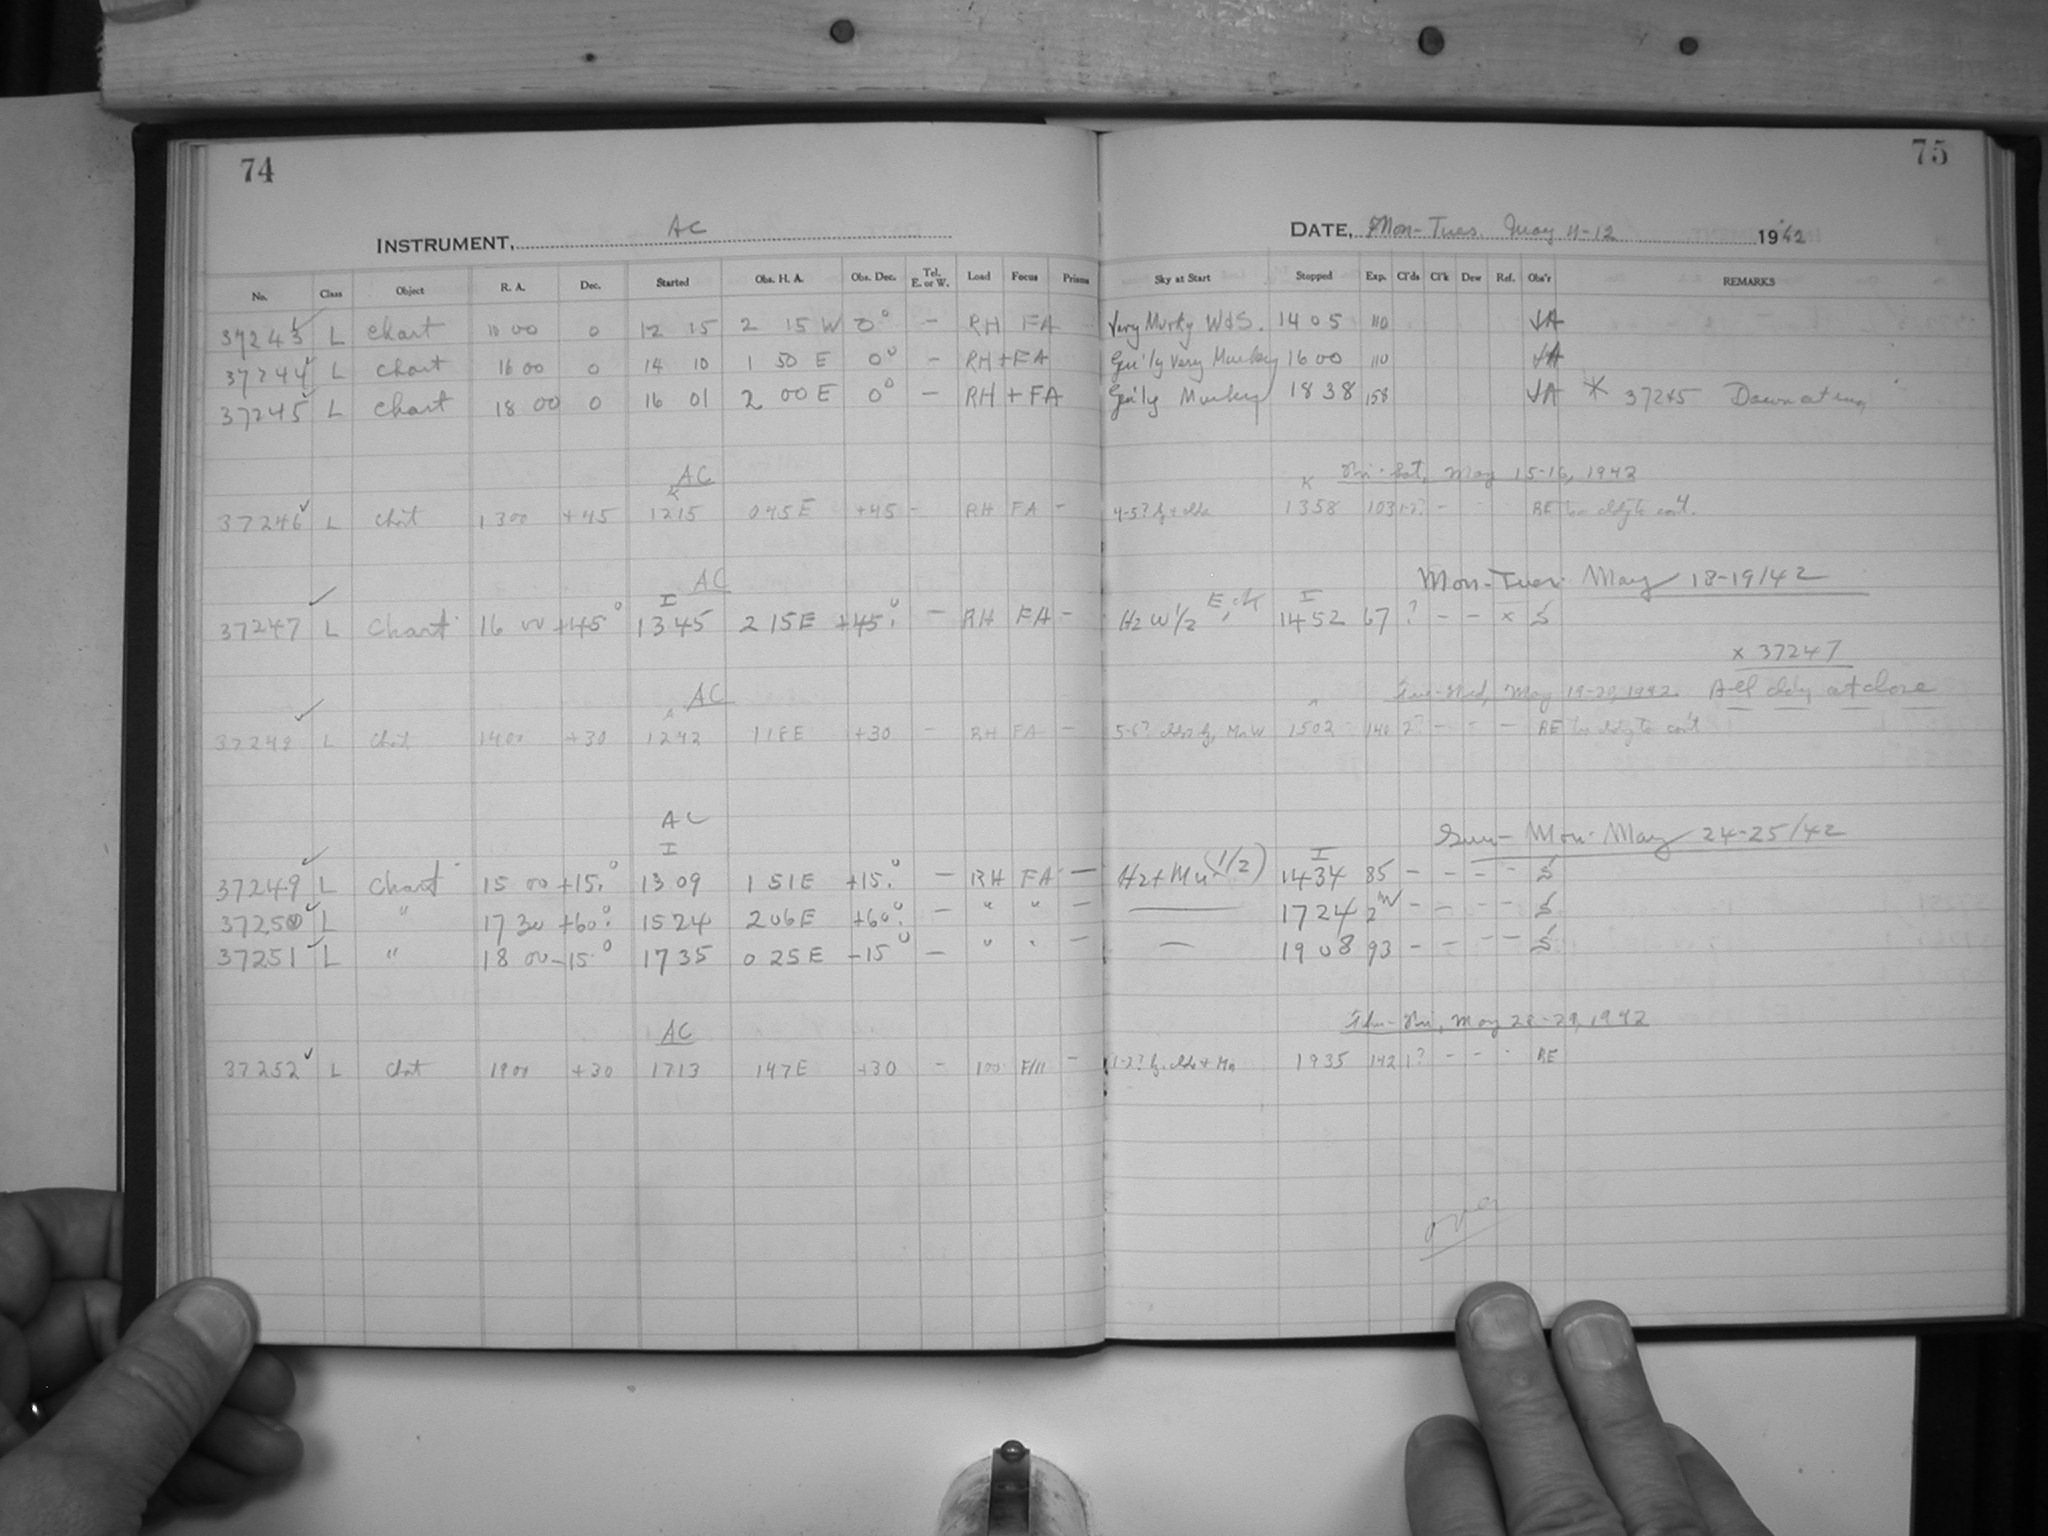 74
75
INSTRUMENT, AC
DATE, Mon-Tues. May 11-12 1942
No. Class Object R. A. Dec. Started Obs. H. A. Obs. Dec. Tel. E. or W. Load Focus Prisms Sky at Start Stopped Exp. Cl'ds Cl'k Dew Ref. Obs'r REMARKS
37243 L Chart 10 00 0 12 15 2 15 W 0° - RH FA Very Murky W&S. 14 05 110 JA
37244 L Chart 16 00 0 14 10 1 50 E 0° - RH+FA Gen'ly Very Murky 16 00 110 JA
37245 L Chart 18 00 0 16 01 2 00 E 0° - RH + FA Gen'ly Murky 18 38 158 JA * 37245 Dawn at
AC Fri-Sat, May 15-16, 1942
37246 L Cht 13 00 +45 1215 045 E +45 - RH FA - 4-5? 1358 103 1-2? - RE too cldy to cont.
AC Mon-Tues. May 18-19/42
I I
37247 L Chart 16 00 +45° 1345 2 15 E +45° - RH FA - Hz W 1/2 E, 1452 67 ? - - x S
x 37247
AC Tue-Wed, May 19-20, 1942. All cldy at close
37248 L Cht 1400 +30 1242 118E +30 - RH FA - 5-6? 1502 140 2? - - - RE too cldy to cont
AC Sun-Mon. May 24-25/42
I I
37249 L Chart 15 00 +15.° 1309 1 51 E +15.° - RH FA - Hz+Mn (1/2) 1434 85 - - - - S
37250 L " 17 30 +60° 1524 2 06 E +60° - " " - 1724 2 - - - - S
37251 L " 18 00 -15° 1735 0 25 E -15° - " " - 1908 93 - - - - S
AC Thu-Fri, May 28-29, 1942
37252 L Cht 1900 +30 1713 147E +30 - 100 F/11 - 1-2? 1935 142 1? - - - RE
over